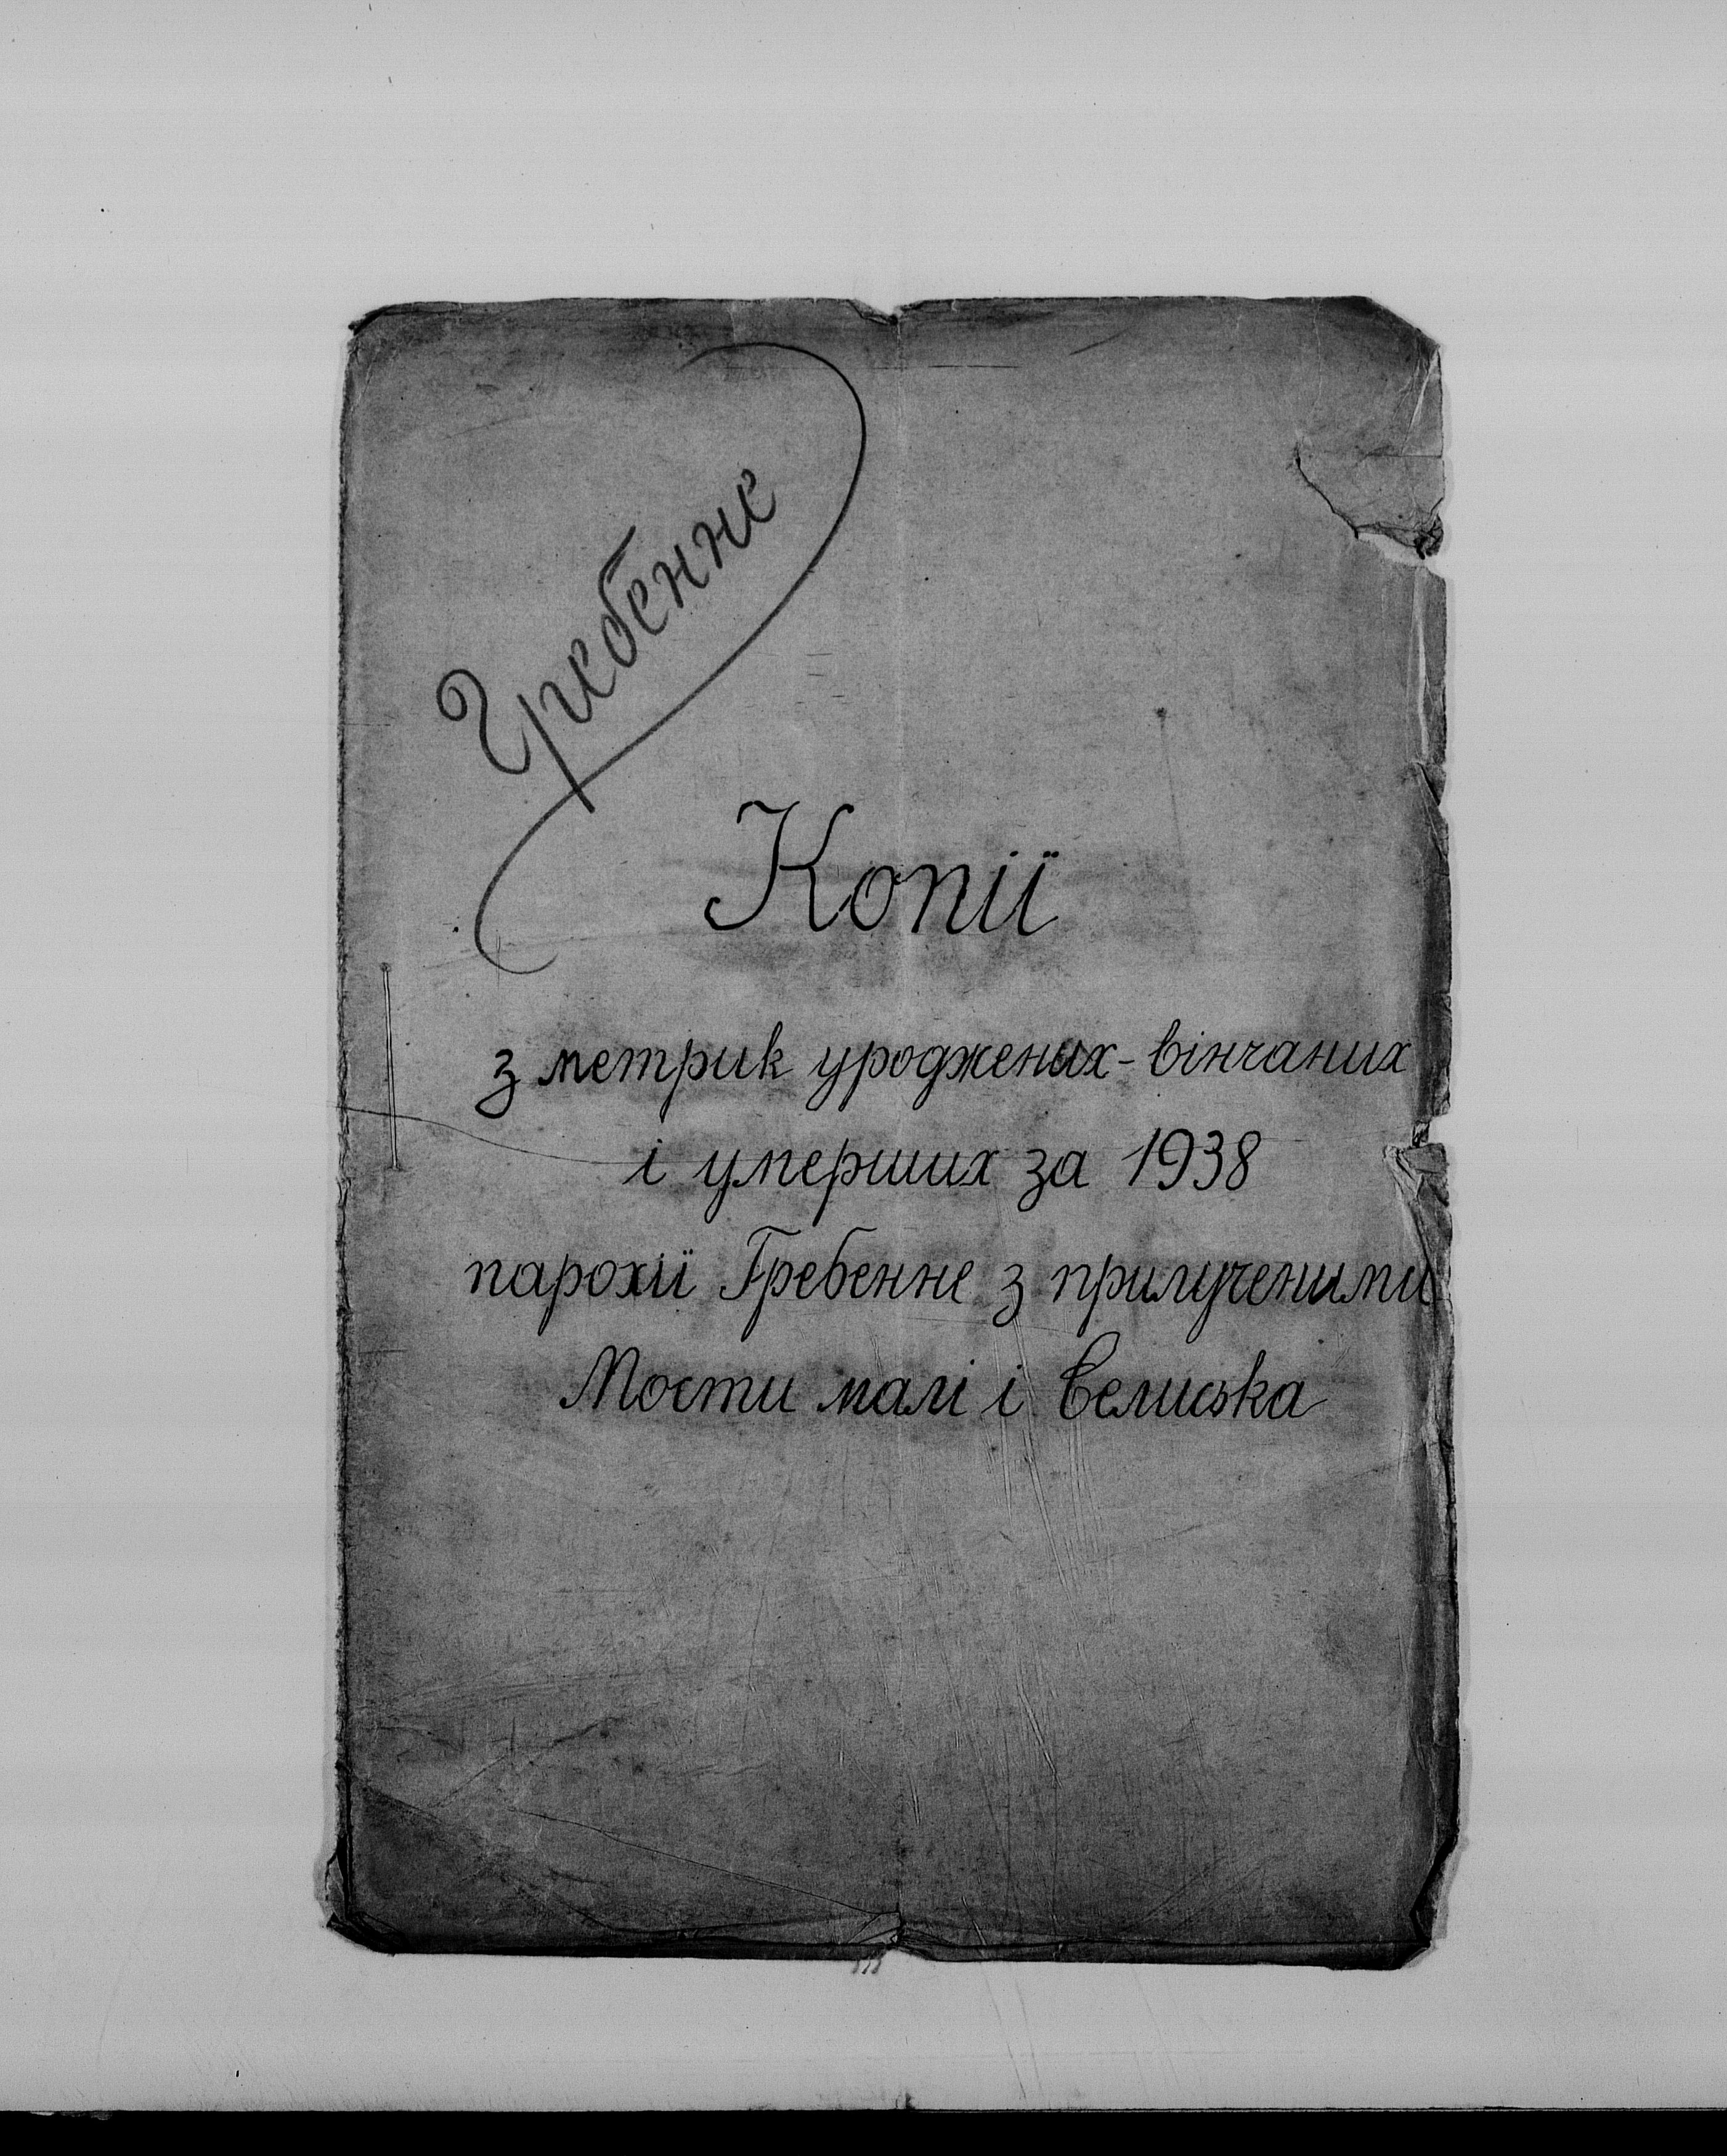 Гребенне
Копії
з метрик уроджених-вінчаних
і умерших за 1938
парохії Гребенне з прилученими
Мости малі і